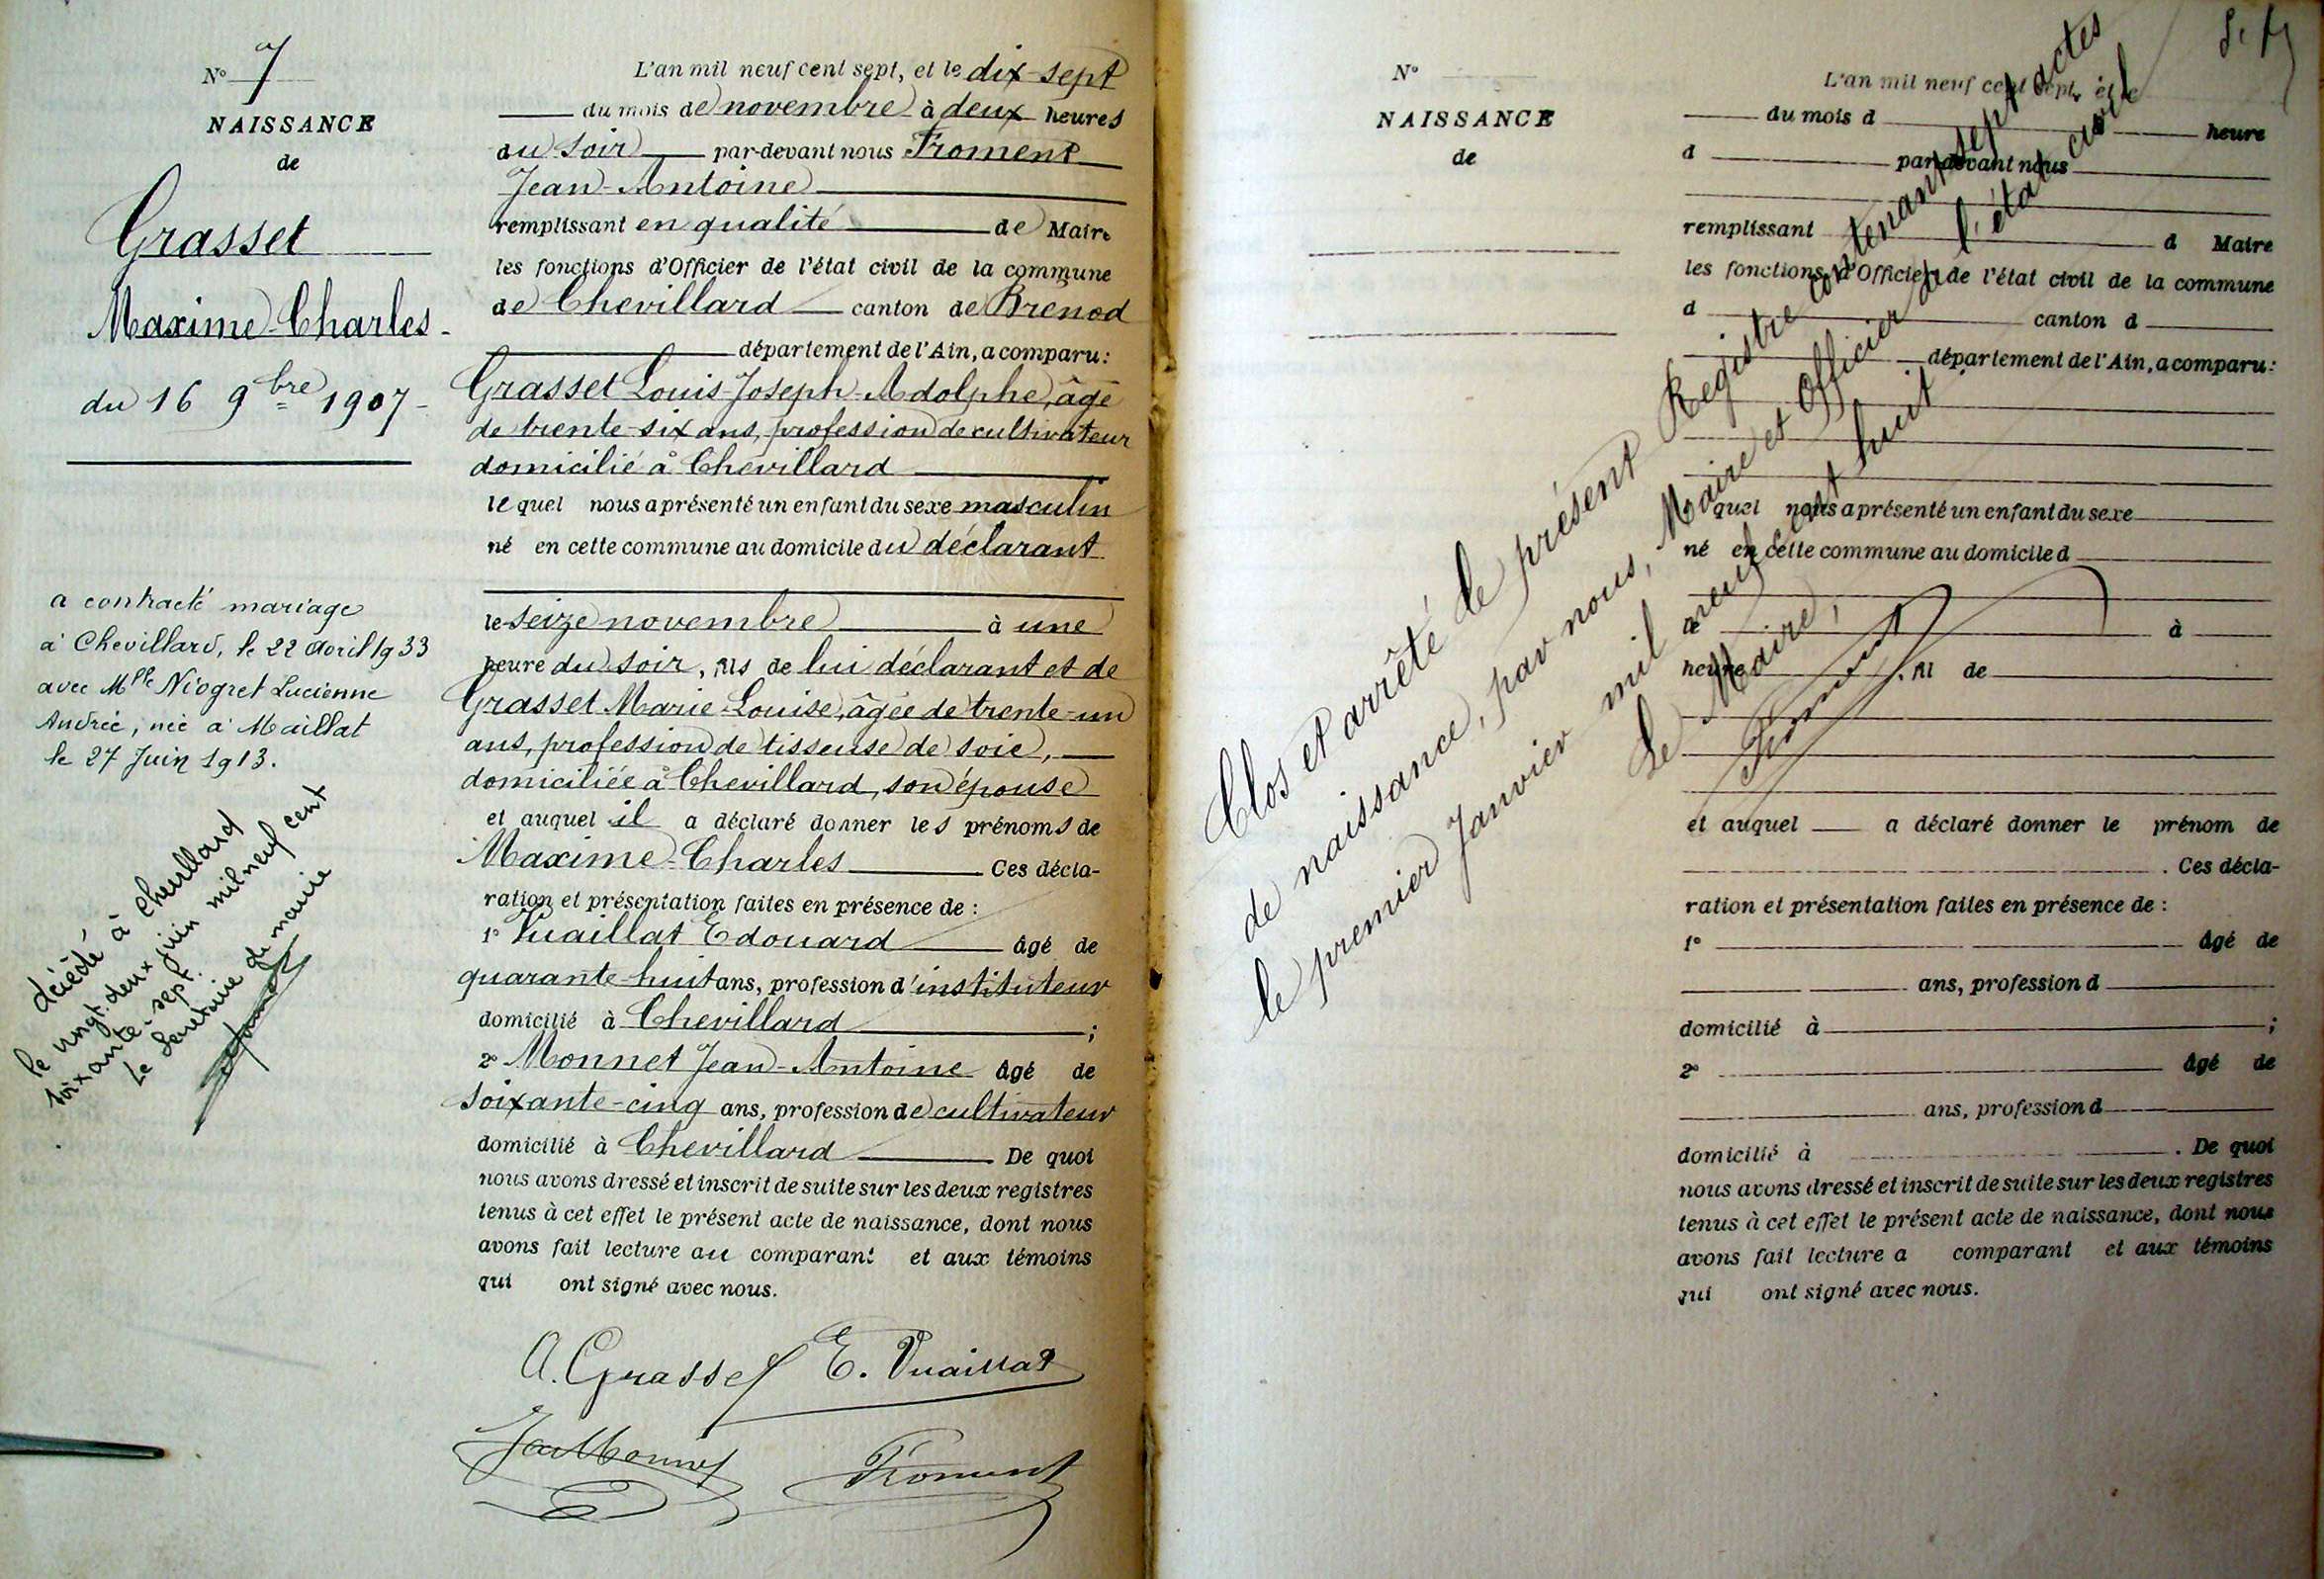 N° 7
NAISSANCE
de
Grasset
Maxime-Charles
du 16 9bre 1907
a contracté mariage
à Chevillard, le 22 avril 1933
avec Mlle Niogret Lucienne
Andrée, née à Maillat
le 27 Juin 1913.
décédé à Chevillard
le vingt-deux juin mil neuf cent
soixante-sept.
Le Secrétaire de mairie
L'an mil neuf cent sept, et le dix-sept
du mois de novembre à deux heures
du soir par-devant nous Froment
Jean-Antoine
remplissant en qualité de Maire
les fonctions d'Officier de l'état civil de la commune
de Chevillard canton de Brénod
département de l'Ain, a comparu :
Grasset Louis-Joseph-Adolphe, âgé
de trente-six ans, profession de cultivateur
domicilié à Chevillard
lequel nous a présenté un enfant du sexe masculin
né en cette commune au domicile du déclarant
le seize novembre à une
heure du soir, fils de lui déclarant et de
Grasset Marie-Louise, âgée de trente-un
ans, profession de tisseuse de soie,
domiciliée à Chevillard, son épouse
et auquel il a déclaré donner les prénoms de
Maxime-Charles Ces décla-
ration et présentation faites en présence de :
1° Vuaillat Edouard âgé de
quarante-huit ans, profession d'instituteur
domicilié à Chevillard ;
2° Monnet Jean-Antoine âgé de
soixante-cinq ans, profession de cultivateur
domicilié à Chevillard De quoi
nous avons dressé et inscrit de suite sur les deux registres
tenus à cet effet le présent acte de naissance, dont nous
avons fait lecture au comparant et aux témoins
qui ont signé avec nous.
A. Grasset E. Vuaillat
Monnet Froment
N°
NAISSANCE
de
L'an mil neuf cent sept, et le
du mois d heure
d par-devant nous
remplissant d Maire
les fonctions d'Officier de l'état civil de la commune
d canton d
département de l'Ain, a comparu :
quel nous a présenté un enfant du sexe
né en cette commune au domicile d
le à
heure , fil de
et auquel a déclaré donner le prénom de
. Ces décla-
ration et présentation faites en présence de :
1° âgé de
ans, profession d
domicilié à ;
2° âgé de
ans, profession d
domicilié à . De quoi
nous avons dressé et inscrit de suite sur les deux registres
tenus à cet effet le présent acte de naissance, dont nous
avons fait lecture a comparant et aux témoins
qui ont signé avec nous.
Clos et arrêté le présent Registre contenant sept actes
de naissance, par nous, Maire et Officier de l'état civil
le premier Janvier mil neuf cent huit.
Le Maire,
Froment